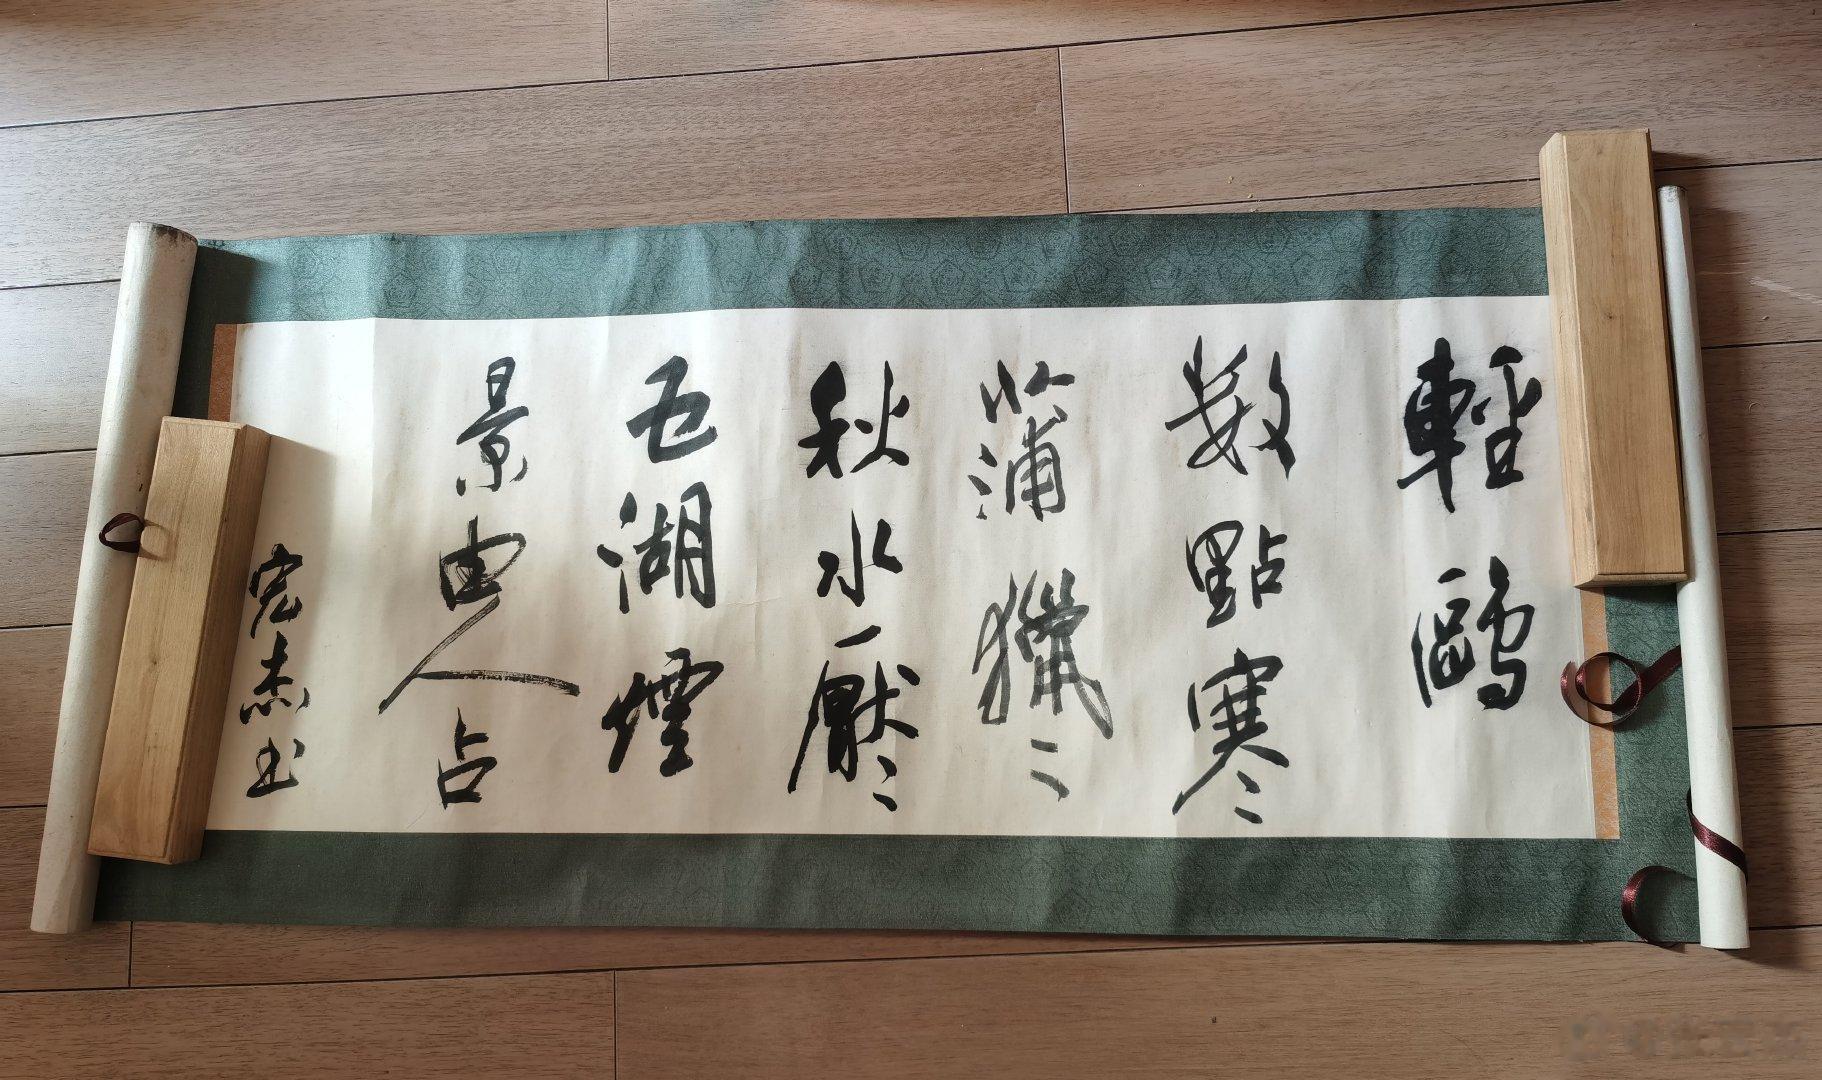 輕鷗
數點寒
蒲獵〻
秋水厭〻
五湖煙
景由人占
宏杰书